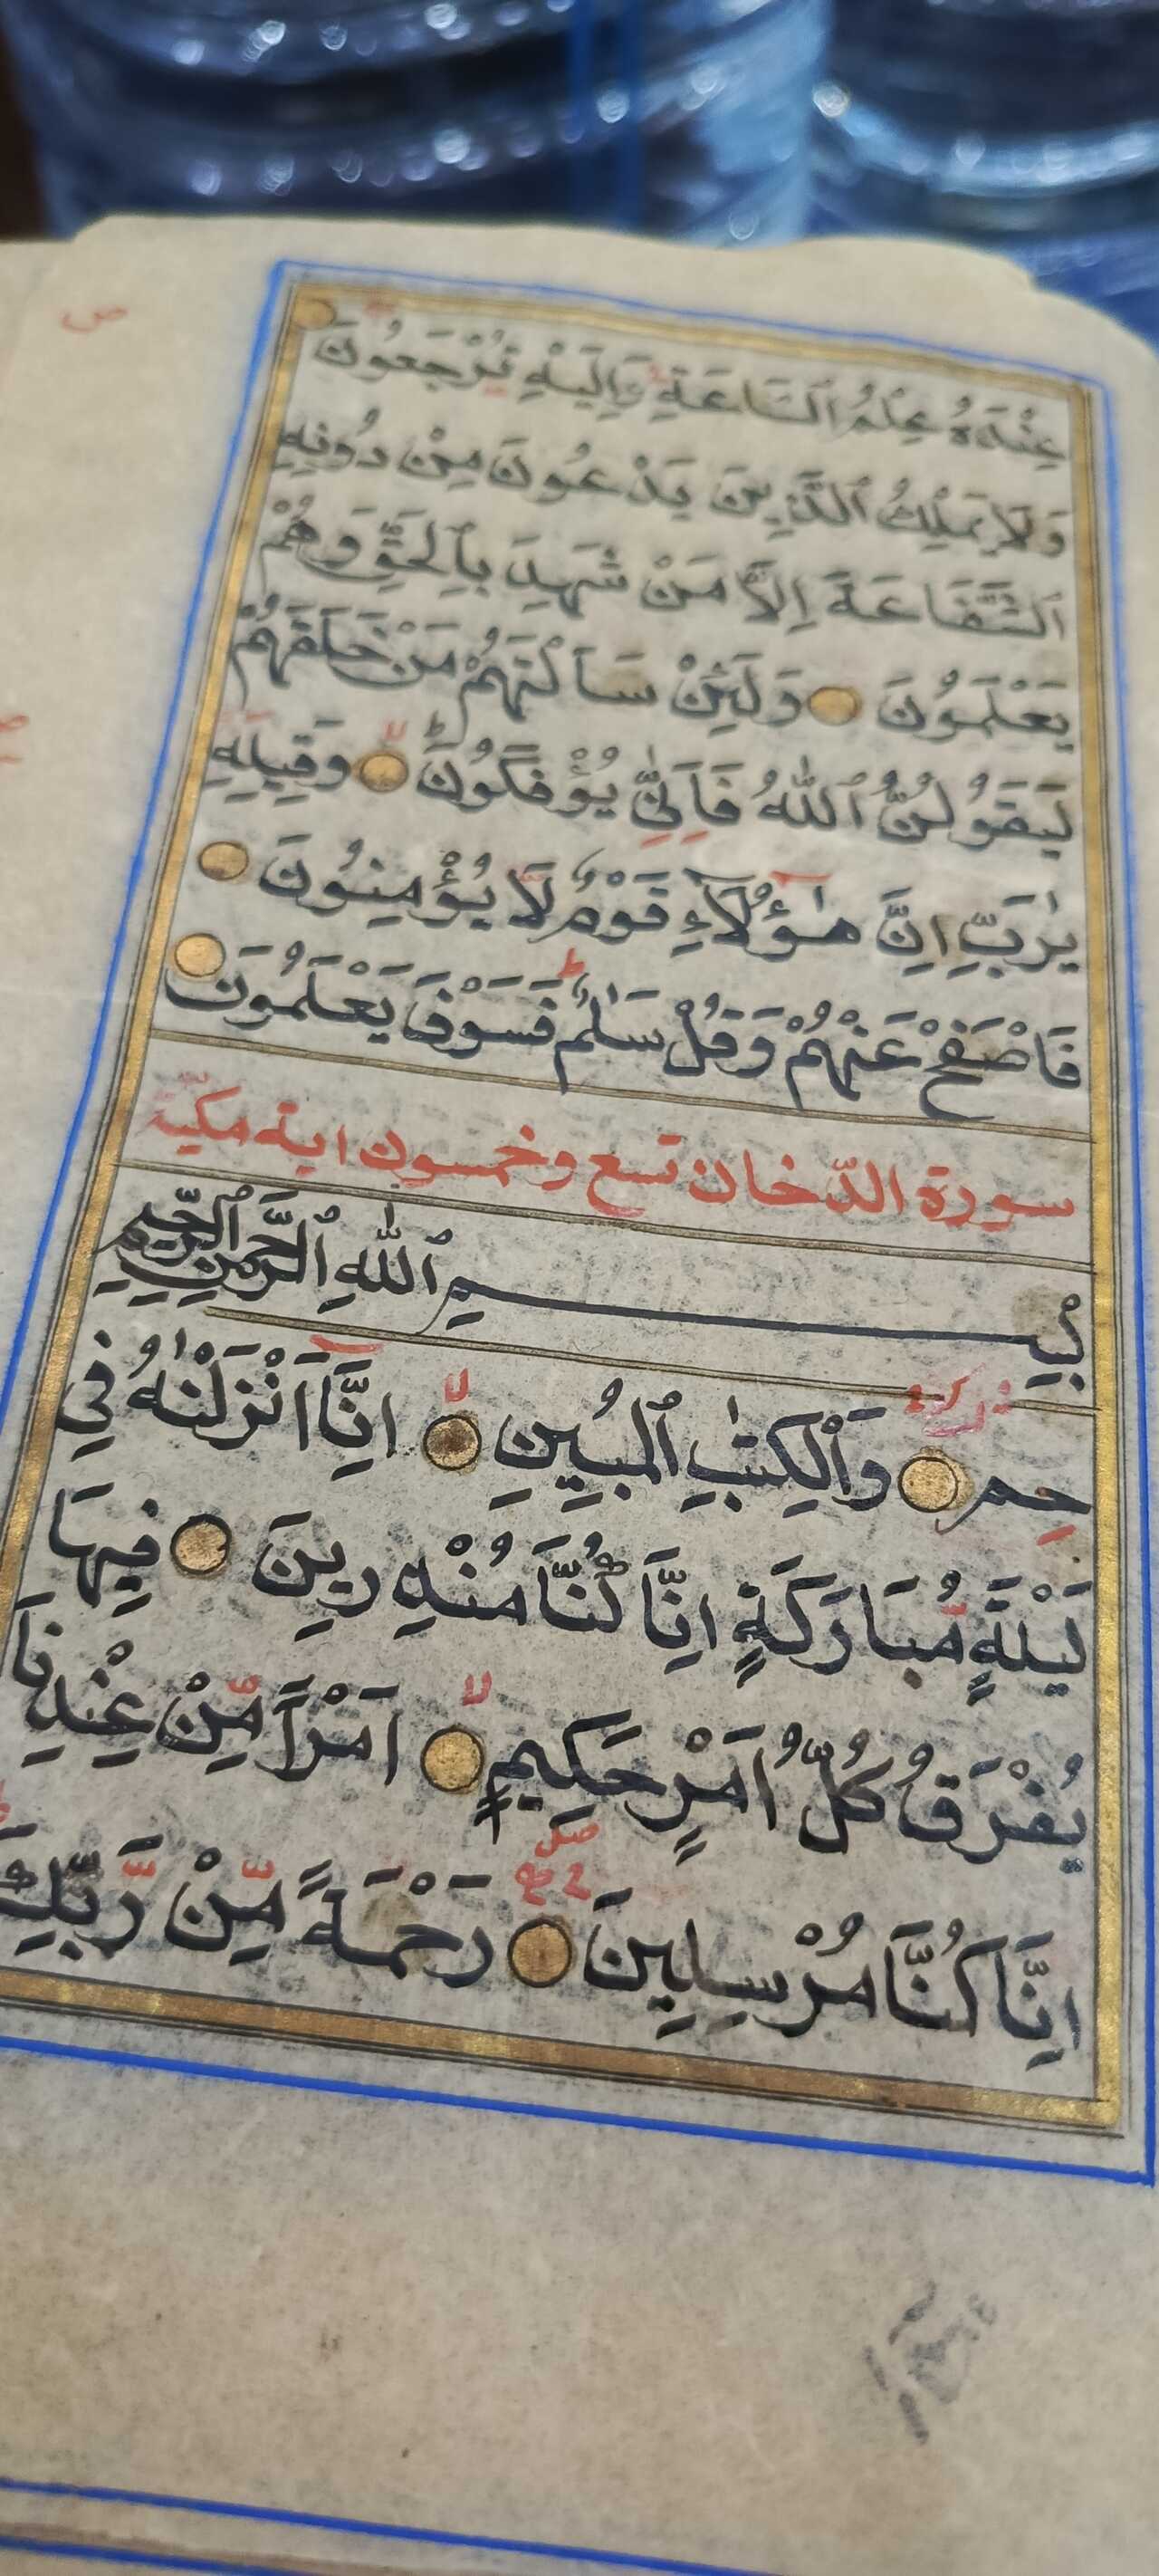 عِنْدَهُ عِلْمُ ٱلسَّاعَةِ وَاِلَيْهِ تُرْجَعُونَ
وَلَا يَمْلِكُ ٱلَّذِينَ يَدْعُونَ مِنْ دُونِهِ
ٱلشَّفَاعَةَ اِلَّا مَنْ شَهِدَ بِٱلْحَقِّ وَهُمْ
يَعْلَمُونَ وَلَئِنْ سَاَلْتَهُمْ مَنْ خَلَقَهُمْ
لَيَقُولُنَّ ٱللّٰهُ فَاَنّٰى يُؤْفَكُونَ وَقِيلِهِ
يٰرَبِّ اِنَّ هٰٓؤُلَآءِ قَوْمٌ لَا يُؤْمِنُونَ
فَاصْفَحْ عَنْهُمْ وَقُلْ سَلٰمٌ فَسَوْفَ يَعْلَمُونَ
سورة الدّخان تسع وخمسون اية مكيّة
بِسْمِ ٱللّٰهِ ٱلرَّحْمٰنِ ٱلرَّحِيمِ
حم وَٱلْكِتٰبِ ٱلْمُبِينِ اِنَّآ اَنْزَلْنٰهُ فِي
لَيْلَةٍ مُبَارَكَةٍ اِنَّا كُنَّا مُنْذِرِينَ فِيهَا
يُفْرَقُ كُلُّ اَمْرٍ حَكِيمٍ اَمْراً مِنْ عِنْدِنَا
اِنَّا كُنَّا مُرْسِلِينَ رَحْمَةً مِنْ رَبِّكَ